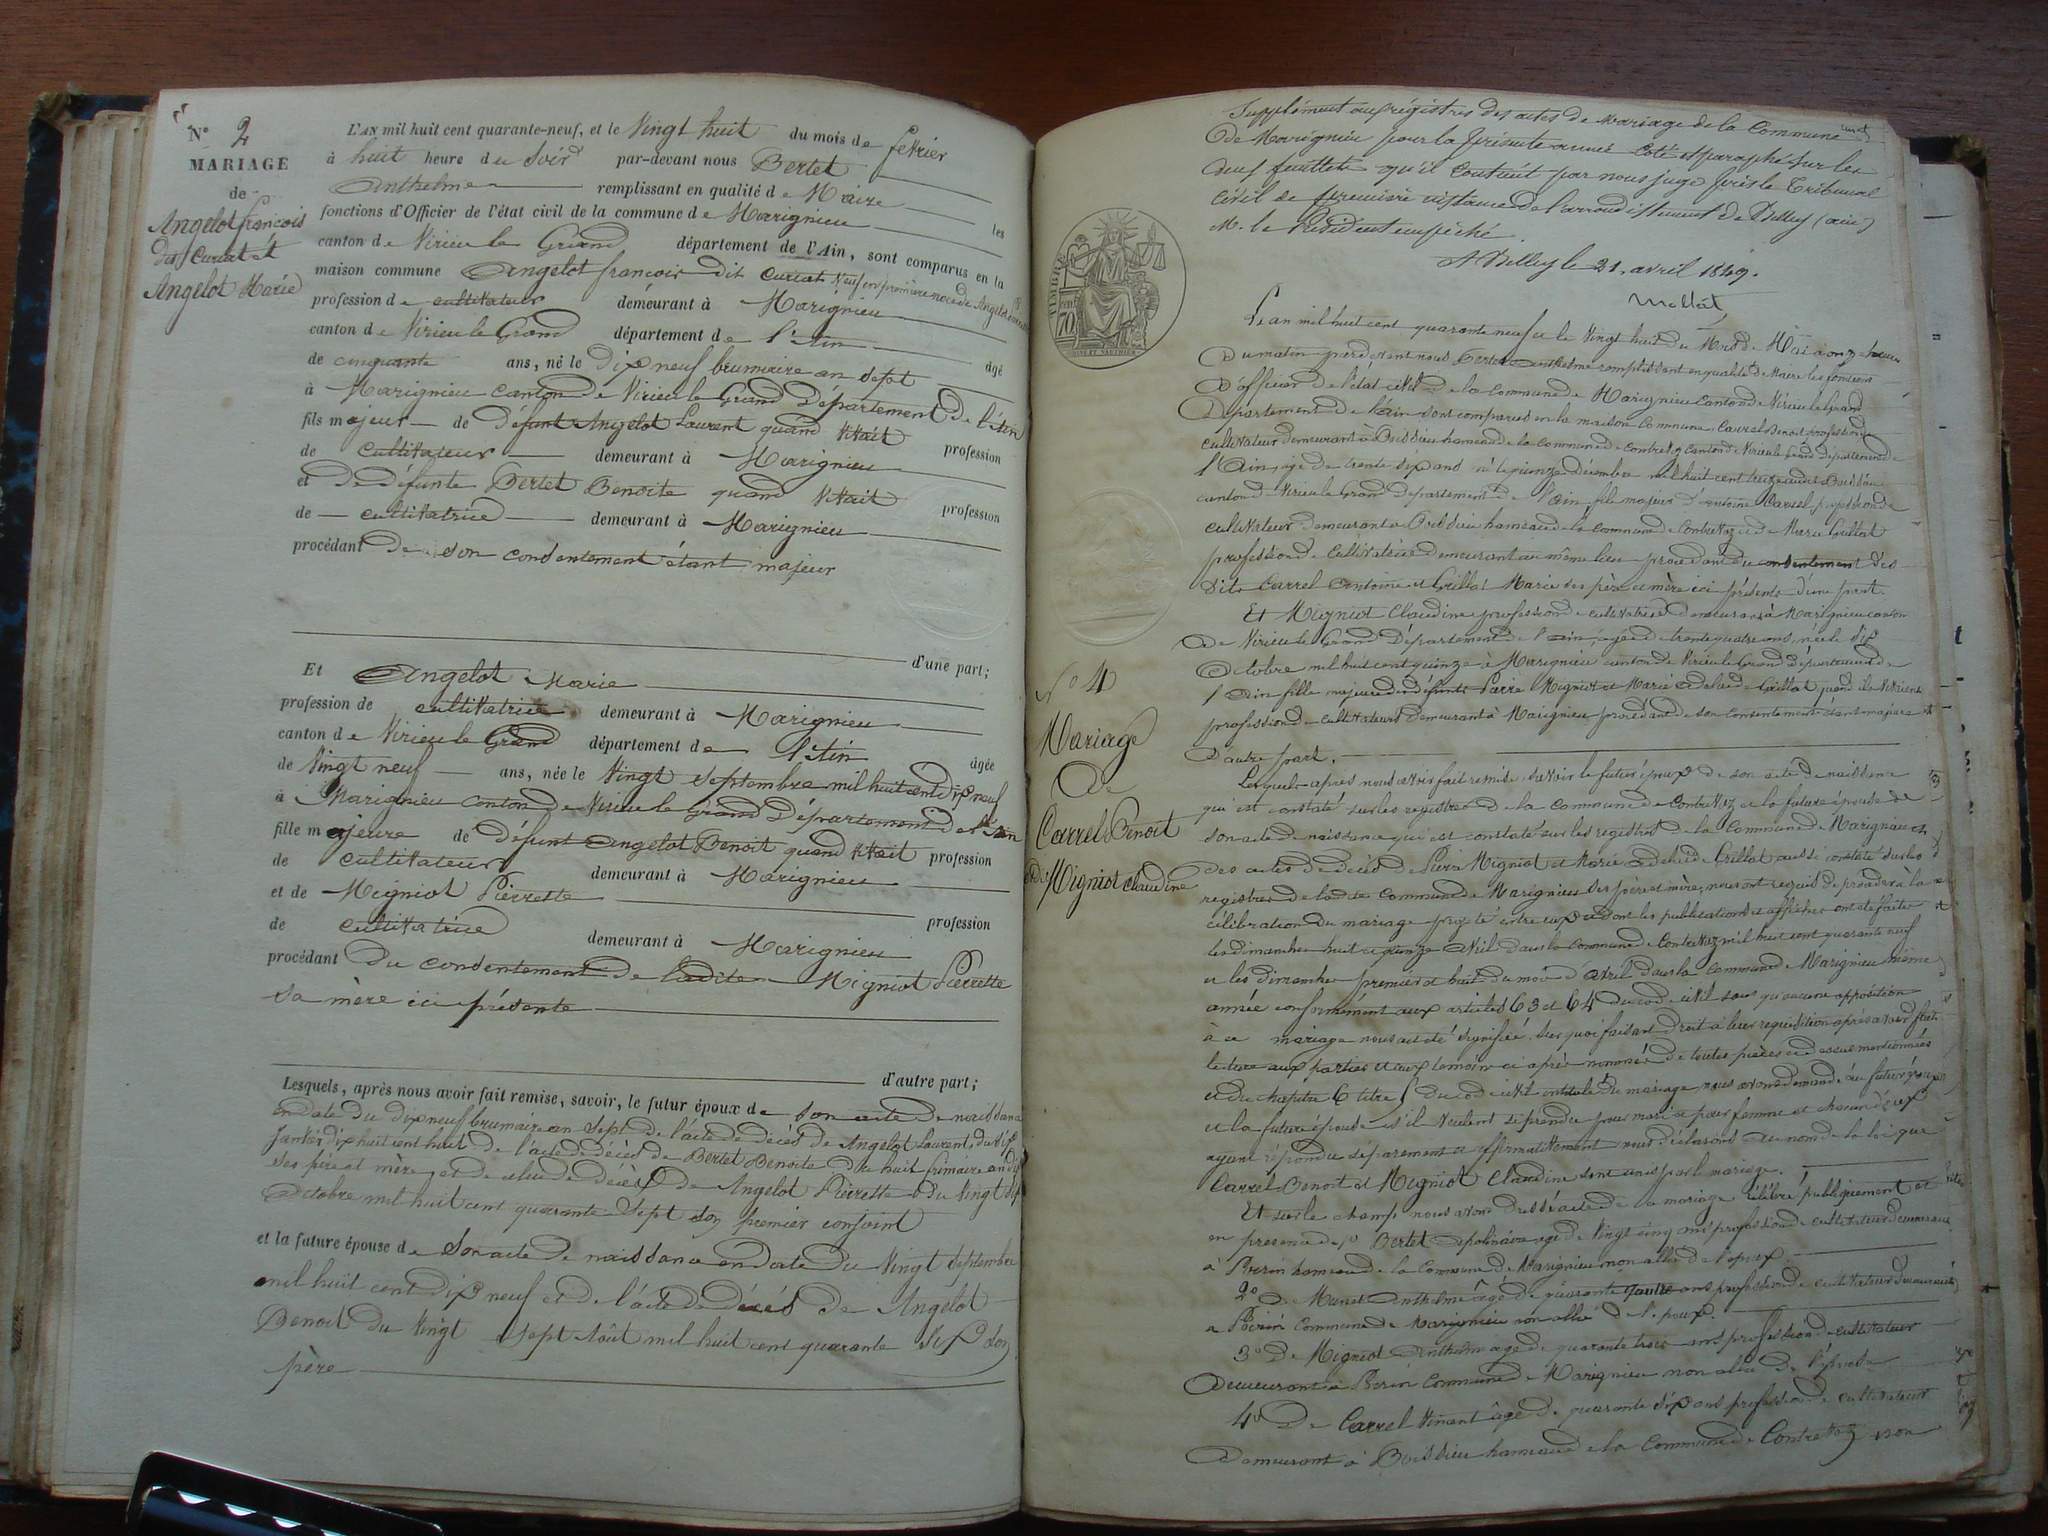 N° 2
MARIAGE
de
Angelot françois
dit Curiat et
Angelot Marie
L'AN mil huit cent quarante-neuf, et le Vingt huit du mois de février
à huit heure du Soir par-devant nous Bertet
Anthelme remplissant en qualité de Maire les
fonctions d'Officier de l'état civil de la commune de Marignieu
canton de Virieu le Grand département de l'Ain, sont comparus en la
maison commune Angelot françois dit Curiat Veuf en première noce de Angelot
profession de cultivateur demeurant à Marignieu
canton de Virieu le Grand département de l'Ain âgé
de cinquante ans, né le Dix neuf brumaire an Sept
à Marignieu canton de Virieu le Grand Département de l'Ain
fils majeur de Défunt Angelot Laurent quand Vivait profession
de cultivateur demeurant à Marignieu
et de défunte Bertet Benoite quand Vivait profession
de cultivatrice demeurant à Marignieu
procédant de son consentement étant majeur
d'une part;
Et Angelot Marie
profession de cultivatrice demeurant à Marignieu
canton de Virieu le Grand département de l'Ain âgée
de Vingt neuf ans, née le Vingt Septembre mil huit cent dix neuf
à Marignieu canton de Virieu le Grand Département de l'Ain
fille majeure de défunt Angelot Benoit quand Vivait profession
de cultivateur demeurant à Marignieu
et de Migniot Pierrette profession
de cultivatrice demeurant à Marignieu
procédant du consentement de ladite Migniot Pierrette
sa mère ici présente
d'autre part;
Lesquels, après nous avoir fait remise, savoir, le futur époux de son acte de naissance
en date du dix neuf brumaire an Sept de l'acte de décès de Angelot Laurent, du dix
Janvier dix huit cent huit de l'acte de décès de Bertet Benoite du huit frimaire an dix
ses père et mère, et de celui de décès de Angelot Pierrette du Vingt dix
octobre mil huit cent quarante Sept son premier conjoint
et la future épouse de Son acte de naissance en date du Vingt Septembre
mil huit cent dix neuf et de l'acte de décès de Angelot
Benoit du Vingt Sept Août mil huit cent quarante Six son
père
Supplément aux régistres des actes de Mariage de la Commune
de Marignieu pour la présente année Coté et paraphé sur les
deux feuillets qu'il Contient par nous juge près le Tribunal
Civil de première instance de l'arrondissement de Belley (ain)
M. le Président empêché
A Belley le 21. avril 1849.
TIMBRE
70
N° 4
Mariage
De
Carrel Benoit
et de Migniot Claudine
L'an mil huit cent quarante neuf et le Vingt huit du Mois de Mai à onze heures
Du matin pardevant nous Bertet Anthelme remplissant en qualité de Maire les fonctions
D'officier de l'état civil de la Commune de Marignieu Canton de Virieu le Grand
Département de l'ain sont comparus en la maison Commune Carrel Benoit profession de
cultivateur demeurant à Boissieu hameau de la Commune de Contrevoz Canton de Virieu le Grand département de
l'Ain, âgé de trente six ans né le quinze décembre mil huit cent à Boissieu
canton de Virieu le Grand département de l'Ain, fils majeur d'antoine Carrel profession de
cultivateur demeurant à Boissieu hameau de la Commune de Contrevoz et de Marie Grillot
profession de Cultivatrice demeurant au même lieu procédant du consentement des
dits Carrel Antoine et Grillot Marie ses père et mère ici présents d'une part.
Et Migniot Claudine profession de cultivatrice demeurant à Marignieu canton
de Virieu le Grand Département de l'ain, âgée de trente quatre ans, née le dix
Octobre mil huit cent quinze à Marignieu canton de Virieu le Grand Département de
l'Ain fille majeure de défunts Pierre Migniot et Marie Adelaide Grillot quand ils Vivaient
profession de cultivateurs demeurant à Marignieu procédant de son consentement étant majeure
D'autre part.
Lesquels après nous avoir fait remise, savoir le futur époux de son acte de naissance
qui est constaté sur les registres de la Commune de Contrevoz et la future épouse de
son acte de naissance qui est constaté sur les registres de la Commune de Marignieu et
des actes de décès de Pierre Migniot et Marie Adelaide Grillot aussi constaté sur les
registres de ladite Commune de Marignieu ses père et mère, nous ont requis de procéder à la
célébration du mariage projeté entre eux et dont les publications et affiches ont été faites
les dimanches huit et quinze Avril dans la Commune de Contrevoz mil huit cent quarante neuf
et les dimanches premier et huit du mois d'avril dans la Commune de Marignieu même
année conformément aux articles 63 et 64 du code civil sans qu'aucune opposition
à ce mariage nous ait été signifiée. Sur quoi faisant droit à leur requisition après avoir fait
lecture aux parties et aux témoins ci après nommés de toutes pièces ci dessus mentionnées
et du chapitre 6 titre 5 du code civil intitulé du mariage, nous avons demandé au futur époux
et la future épouse s'il Veulent se prendre pour mari et pour femme et chacun d'eux
ayant répondu séparement et affirmativement nous déclarons au nom de la loi que
Carrel Benoit et Migniot Claudine sont unis par le mariage.
Et sur le champ nous avons dressé acte de ce mariage célébré publiquement
en présence de 1° Bertet apolinaire âgé de Vingt cinq ans profession de cultivateur demeurant
à hameau de la Commune de Marignieu non allié de l'époux.
2° de Munet Anthelme âgé de quarante quatre ans profession de cultivateur demeurant
à Commune de Marignieu non allié de l'époux.
3° De Migniot Anthelme âgé de quarante trois ans profession de cultivateur
Demeurant à Commune de Marignieu non allié de l'épouse
4° De Carrel Vincent âgé de quarante six ans profession de cultivateur
Demeurant à Boissieu hameau de la Commune de Contrevoz non